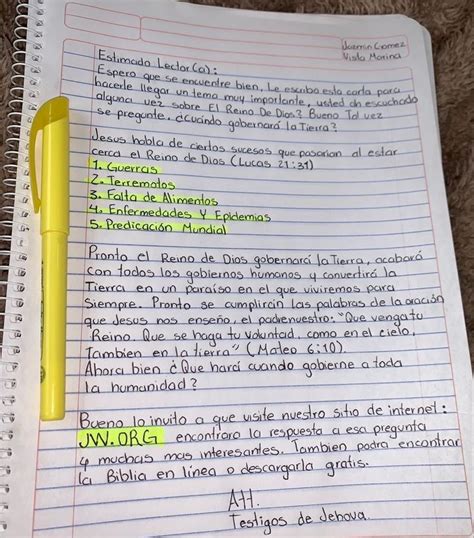 Jazmin Gomez
Vista Marina
Estimado Lector(a):
Espero que se encuentre bien. Le escribo esta carta para
hacerle llegar un tema muy importante, usted ah escuchado
alguna vez sobre El Reino De Dios? Bueno Tal vez
se pregunte. ¿Cuando gobernará la Tierra?
Jesus habla de ciertos sucesos que pasarian al estar
cerca el Reino de Dios (Lucas 21:31)
1. Guerras
2. Terremotos
3. Falta de Alimentos
4. Enfermedades Y Epidemias
5. Predicación Mundial
Pronto el Reino de Dios gobernará la Tierra, acabará
con todos los gobiernos humanos y convertirá la
Tierra en un paraíso en el que viviremos para
siempre. Pronto se cumplirán las palabras de la oración
que Jesus nos enseño, el padrenuestro: "Que venga tu
Reino. Que se haga tu voluntad, como en el cielo,
Tambien en la tierra" (Mateo 6:10).
Ahora bien ¿Que hará cuando gobierne a toda
la humanidad?
Bueno lo invito a que visite nuestro sitio de internet:
JW.ORG encontrara la respuesta a esa pregunta
y muchas mas interesantes. Tambien podra encontrar
la Biblia en línea o descargarla gratis.
Att.
Testigos de Jehova.